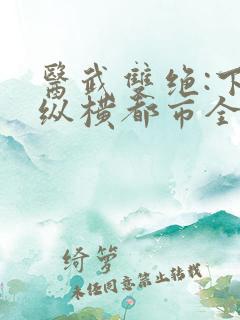 醫武雙绝:下
纵横都市全
绮萝
未经同意禁止转载